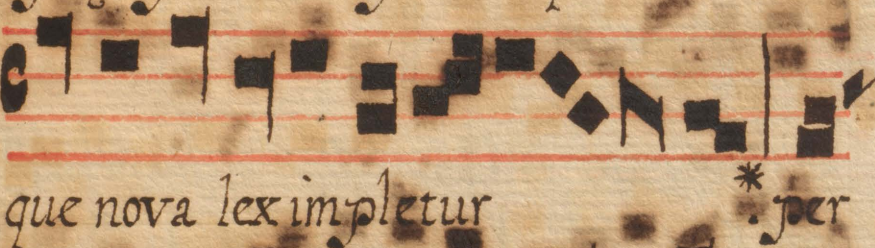 que nova lex impletur * per